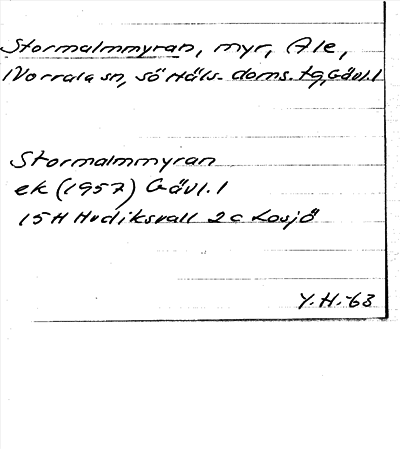 Stormalmmyran, myr, Ale,
Norrala sn, S. Häls. doms. tg, Gävl. l
Stormalmmyran
ek (1957) Gävl. l
15H Hudiksvall 2c Losjö
Y.H.-63